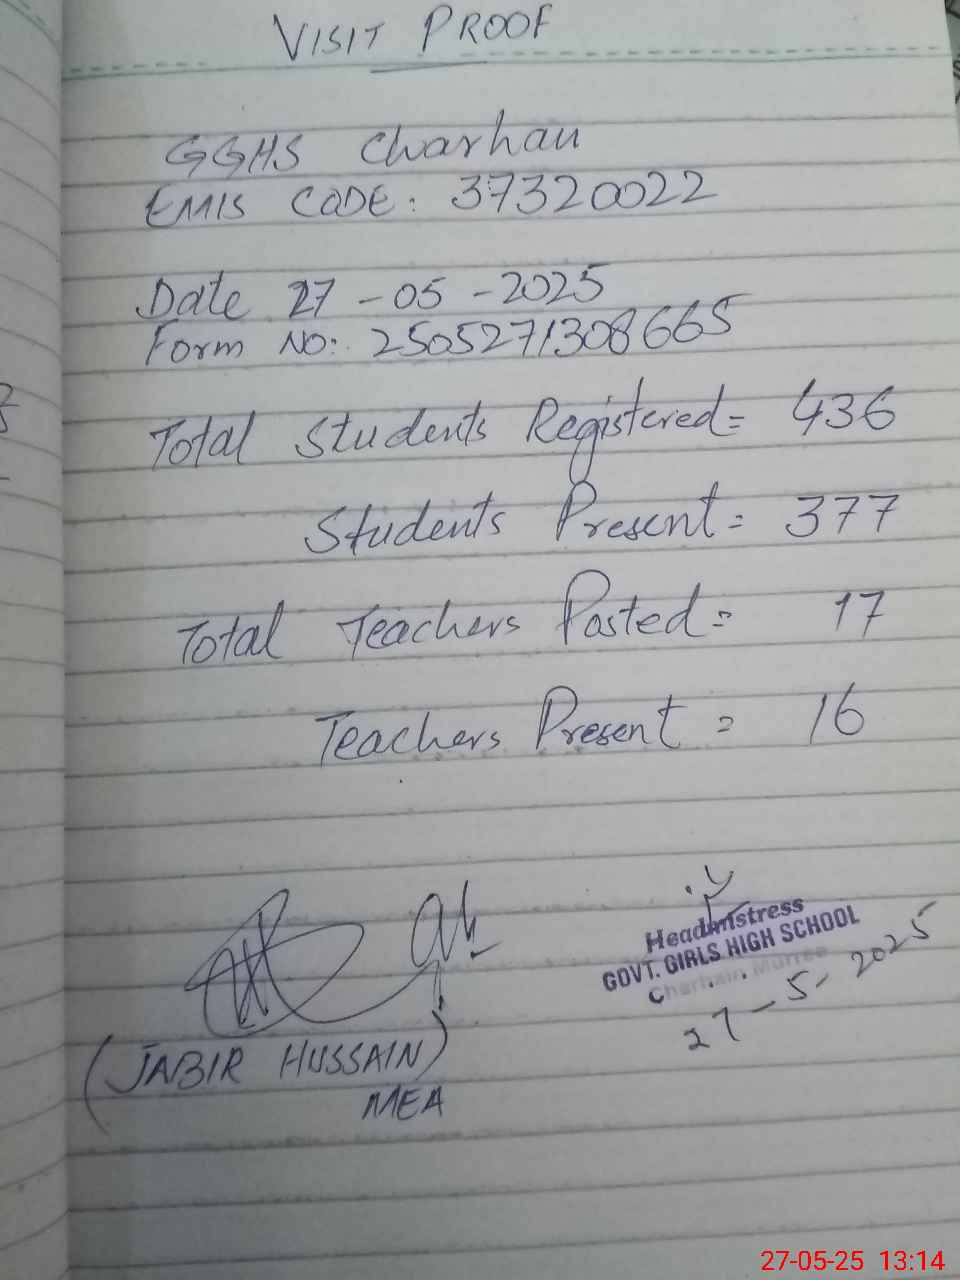 VISIT PROOF
GGHS Charhan
EMIS CODE: 37320022
Date 27-05-2025
Form NO: 2505271308665
Total Students Registered= 436
Students Present= 377
Total Teachers Posted= 17
Teachers Present= 16
(JABIR HUSSAIN)
MEA
Headmistress
GOVT. GIRLS HIGH SCHOOL
Charhan Murree
27-5-2025
27-05-25 13:14